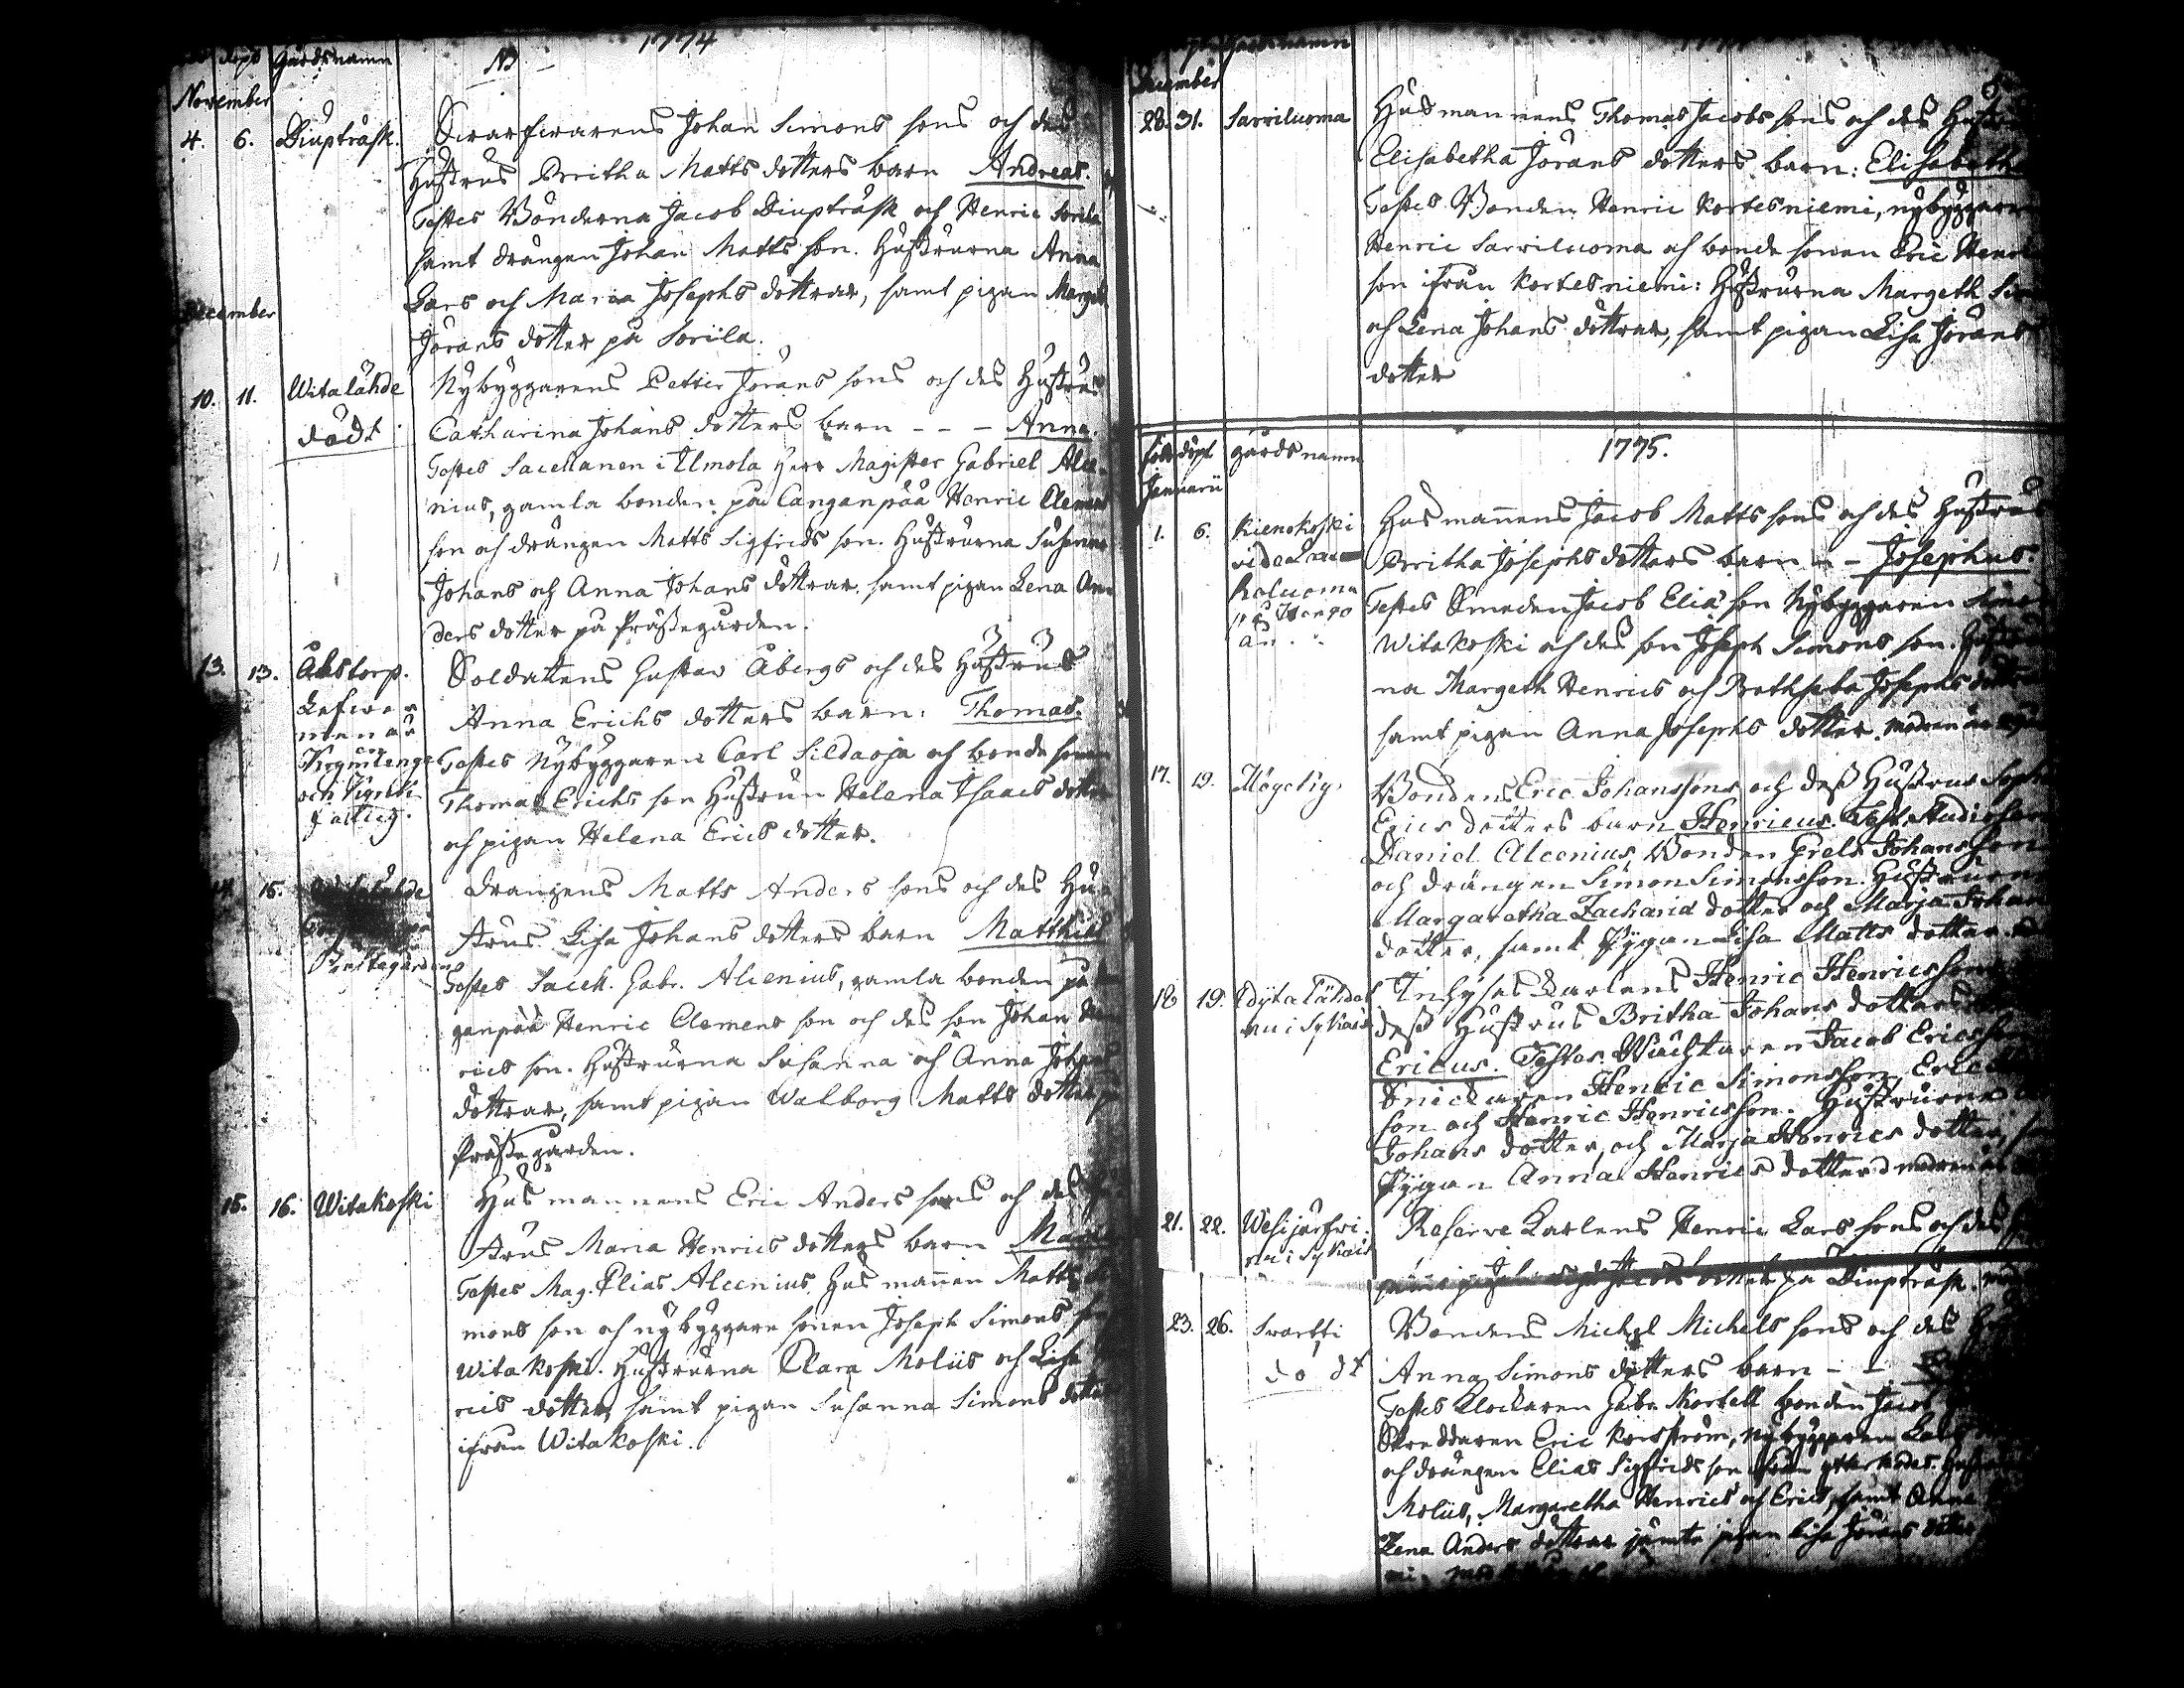 döpt Gårdsnamn
1774
November
4. 6. Diupträsk.
Swarfwarens Johan Simons sons och des
Hustrus Britha Matts dotters barn Andreas.
Testes Bönderna Jacob Diupträsk och Henric Sorila
samt drängen Johan Matts son. Hustrurna Anna
Lars och Maria Josephs döttrar, samt pigan Margeth
Jörans dotter på Soriila.
December
10. 11. Witalähde
död†
Nybyggarens Petter Jörans sons och des Hustrus
Catharina Johans dotters barn - - - Anna.
Testes Sacellanen i Ilmola Herr Magister Gabriel Alce-
nius, gamla bonden på Canganpää Henric Clemens
son och drängen Matts Sigfrids son. Hustrurna Susanna
Johans och Anna Johans döttrar samt pigan Lena An-
ders dotter på Prästegården.
13. 13. Åbstorp.
Soldatens Gustav Åbergs och des Hustrus
Anna Erichs dotters barn. Thomas.
Testes Nybyggaren Carl Sildaoja och bonde sonen
Thomas Erichs son Hustrun Helena Isaacs dotter
och pigan Helena Erics dotter.
15. Witalähde
Prestegården
Drängens Matts Anders sons och des Hu-
strus Lisa Johans dotters barn Matthias
Testes Sacell. Gabr. Alcenius, gamla bonden på Can
ganpää Henric Clemens son och des son Johan Hen
rics son. Hustrurna Susanna och Anna Johans
döttrar, samt pigan Walborg Matts dotter på
Prästegården.
15. 16. Witakoski
Husmannens Eric Anders sons och des Hu
strus Maria Henrics dotters barn
Testes Mag. Elias Alcenius, Husmannen Matts Si
mons son och nybyggare sonen Joseph Simons son
Witakoski. Hustrurna Clara Moliis och Lisa
rics dotter, samt pigan Susanna Simons dotter
ifrån Witakoski.
gårdsnamn
December
28. 31. Sarviluoma
Husmannens Thomas Jacobs sons och des Hustrus
Elisabetha Jörans dotters barn: Elisabeth
Testes Bonden Henric Kortesniemi, nybyggaren
Henric Sarviluoma och bonde sonen Eric Henrics
son ifrån Kortesniemi: Hustrurna Margeth Sim
och Lena Johans döttrar, samt pigan Lisa Jörans
dotter
1775.
född döpt gårdsnamn
Januarii
1. 6. Kienokoski
Koluoma
Husmannens Jacob Matts sons och des Hustrus
Britha Josephs dotters barn - - Josephus.
Testes Smeden Jacob Eliæ son Nybyggaren Simon
Witakoski och des son Joseph Simons son. Hustrur
na Margeth Henrics och Bethseba Josephs döttrar
samt pigan Anna Josephs dotter.
17. 19.
Bondens Eric Johanssons och deß Hustrus Soph
Erics dotters barn Henricus. Test. Studiosen
Daniel Alcenius, Bonden Grels Johansson
och drängen Simon Simonsson. Hustrurna
Margaretha Zachariæ dotter och Marja Johans
dotter, samt Pygan Lisa Matts dotter.
18 19.
Inhyses Karlens Henric Henricssons
deß Hustrus Britha Johans dotters
Ericus. Testes Wäcktaren Jacob Ericsson
Snickaren Henric Simonsson, Eric
son och Henric Henricsson. Hustrurna
Johans dotter, och Marja Henrics dotter, sa
Pygan Anna Henrics dotter
21. 22. Wesijärfwi.
Reserve Karlens Henric Lars sons och des
dotter på Diupträsk.
23. 26. Svartti
död†
Bondens Michel Michels sons och des
Anna Simons dotters barn - -
Testes Klockaren Gabr. Kortell bonden Jacob
Skreddaren Eric Kronström, Nybyggaren Lars
och drängen Elias Sigfrids son
Moliis, Margaretha Henrics och Erics, samt Anna
Lena Anders döttrar jämte pigan Lisa Jörans dotter